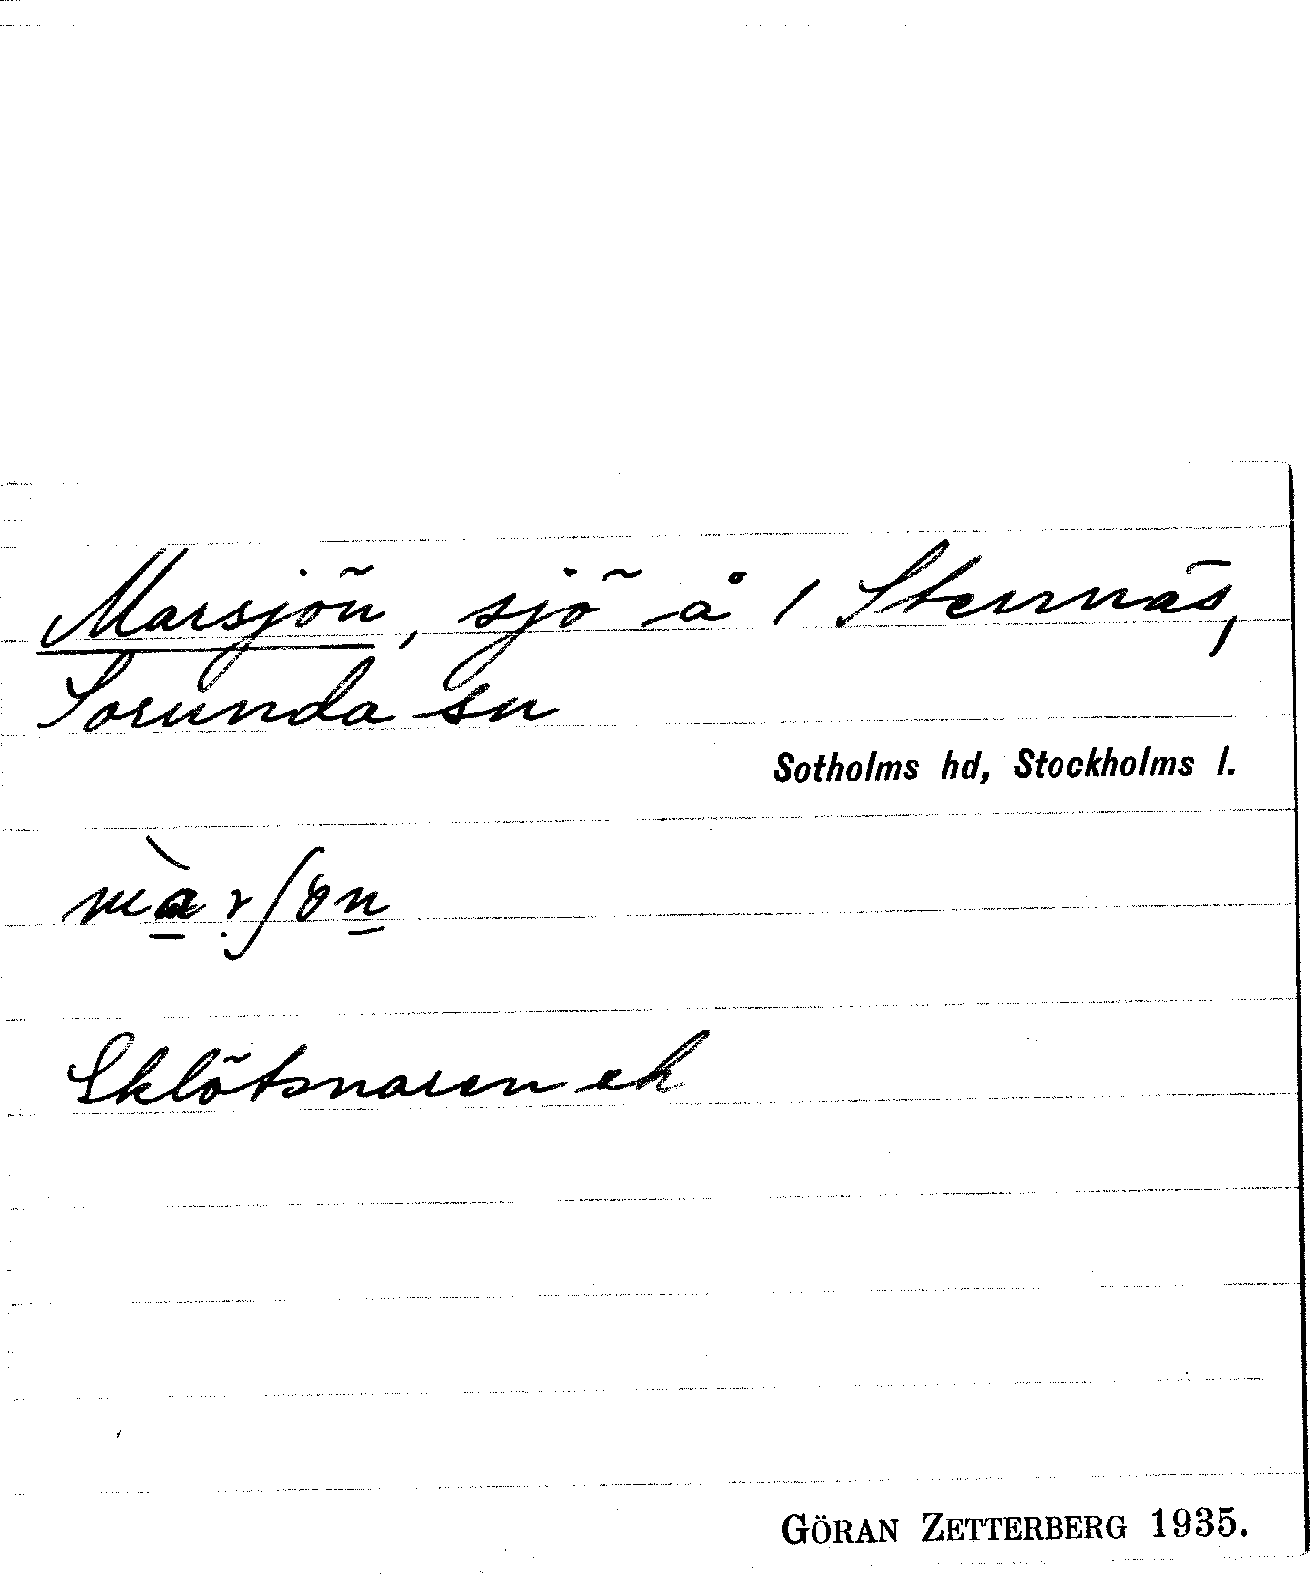 Marsjön, sjö å / Stennäs,
Sorunda sn
Sotholms hd, Stockholms l.
Eklötsnaren ek
GÖRAN ZETTERBERG 1935.